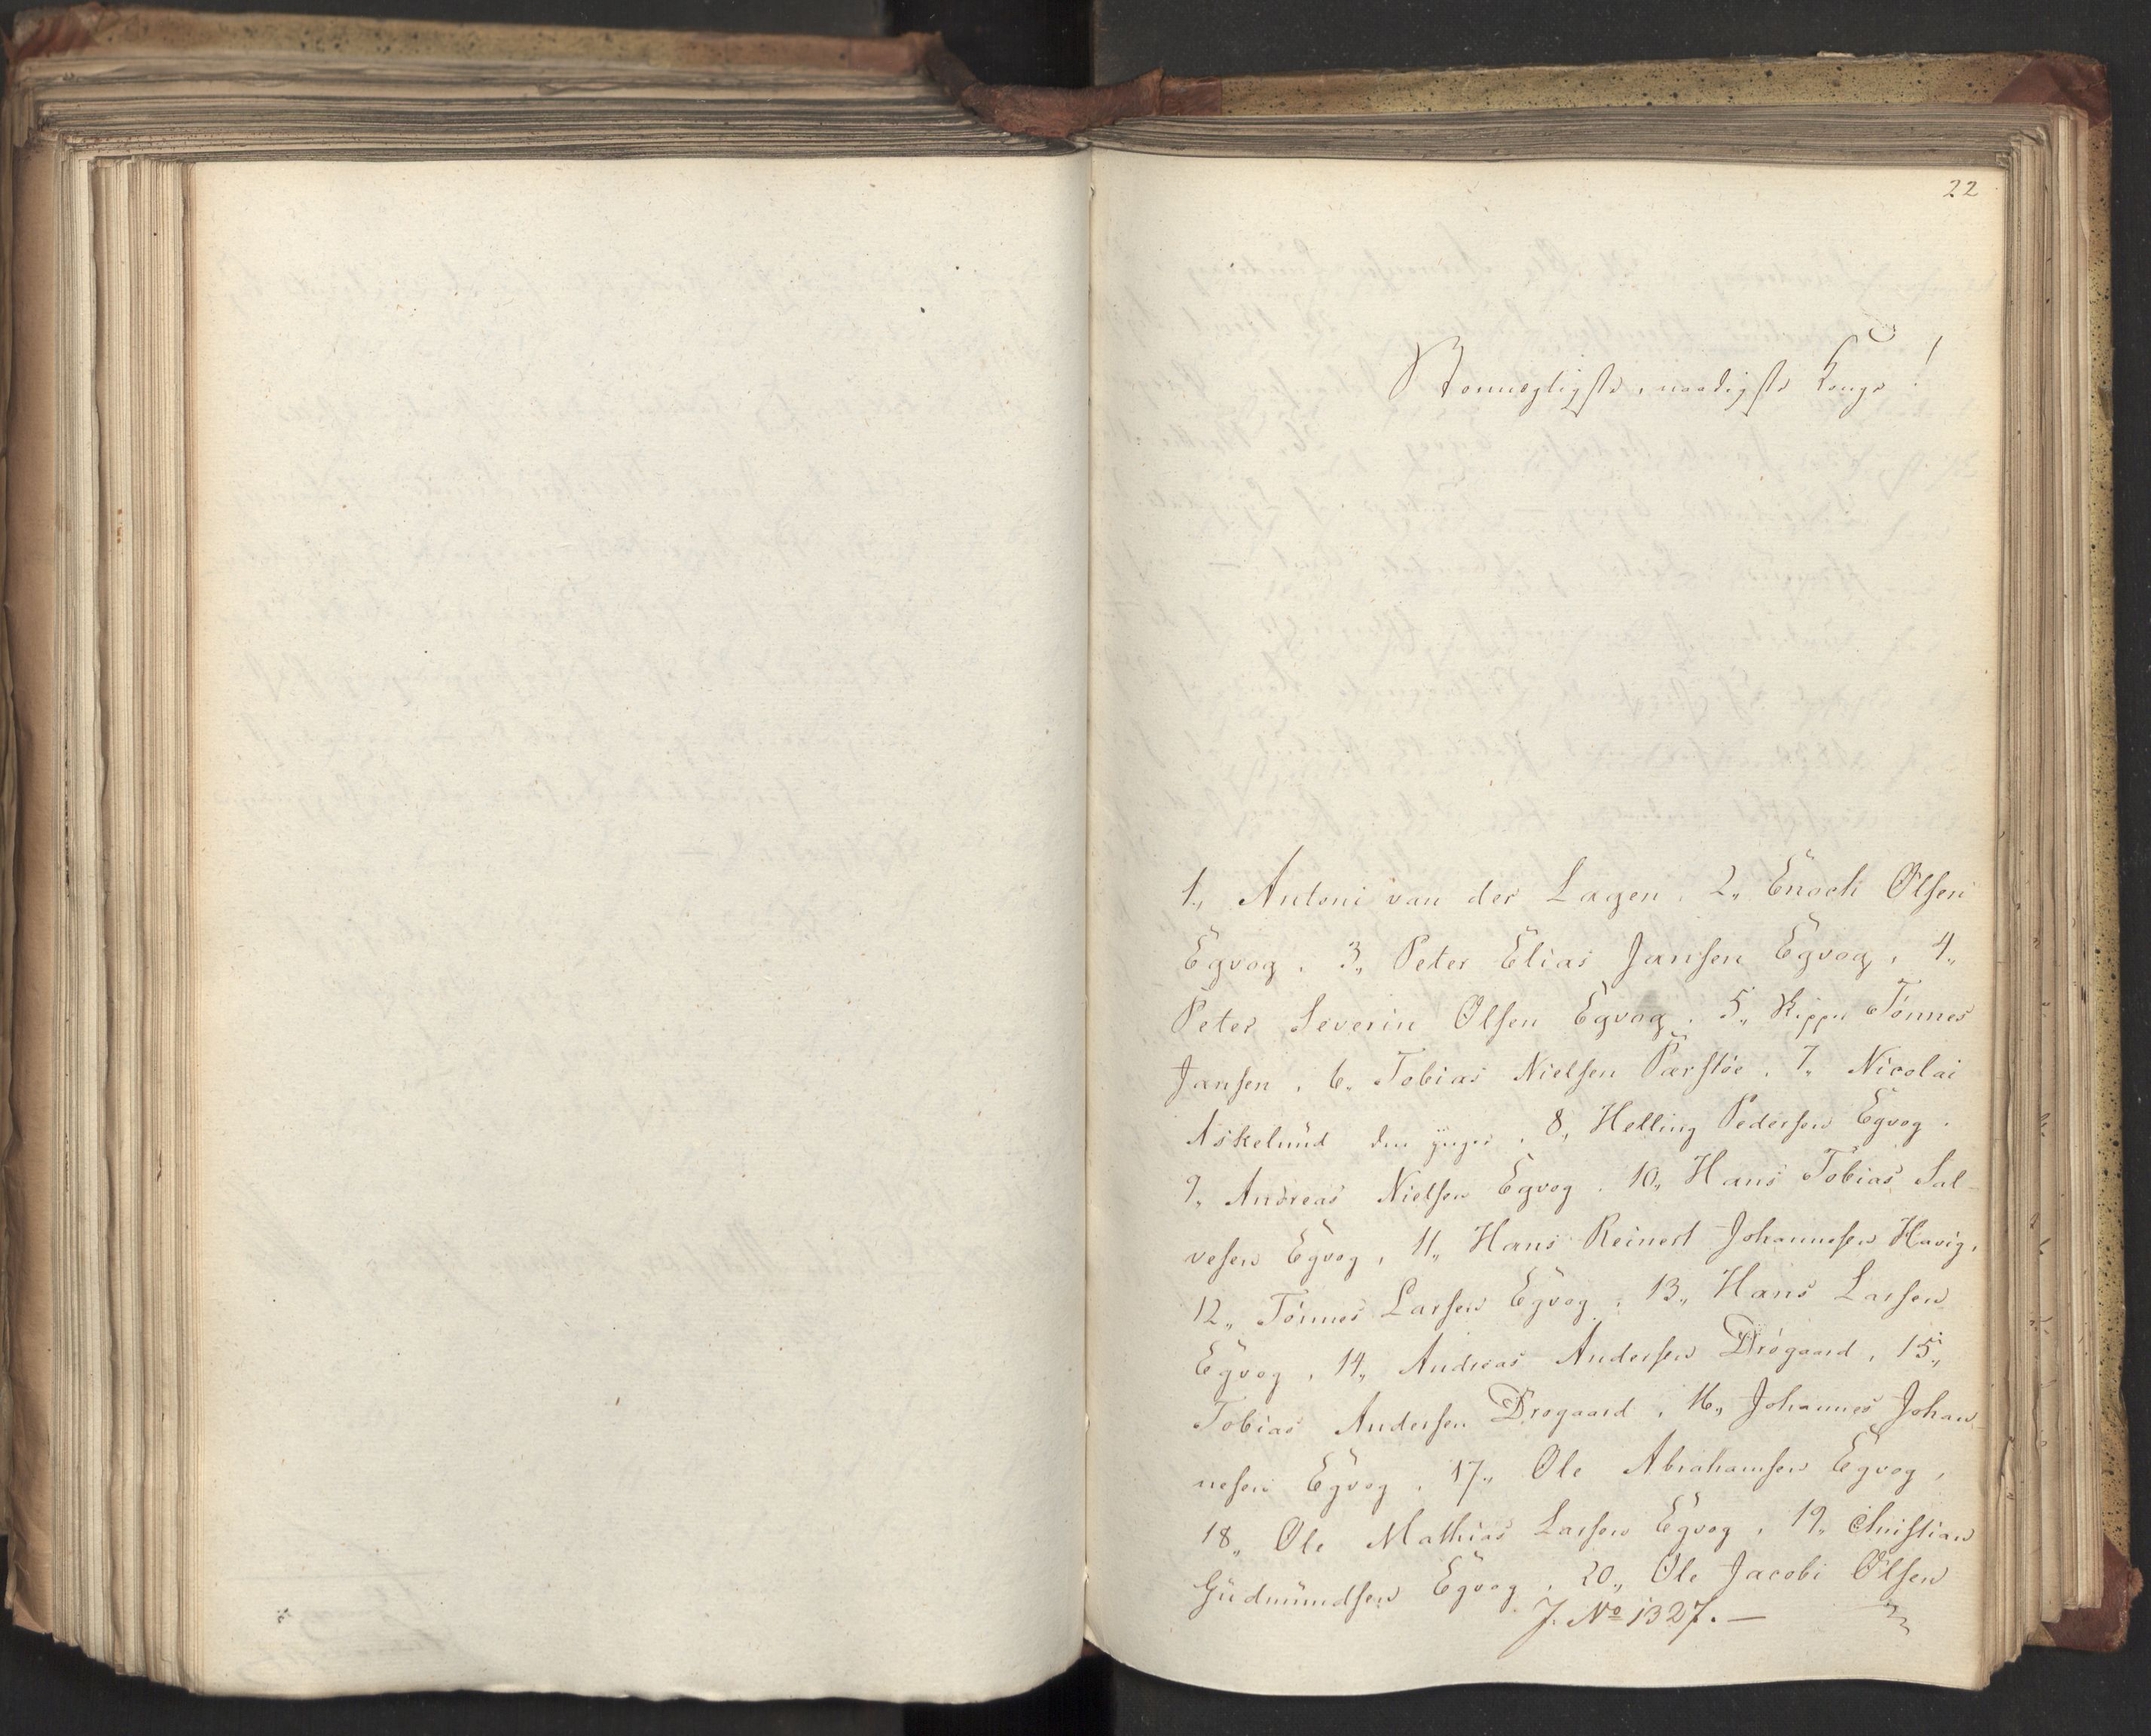 22
Stormægtigste, naadigste Konge!
1., Antoni van der Lagen, 2., Enoch Olsen
Egvog, 3., Peter Elias Jansen Egvog, 4.,
Peter Severin Olsen Egvog, 5., Tönnes
Jansen, 6., Tobias Nielsen Parstöe, 7., Nicolai
Askelund den yngre, 8., Helling Pedersen Egvog,
9., Andreas Nielsen Egvog, 10., Hans Tobias Sal-
vesen Egvog, 11., Hans Reinert Johannesen Havig,
12., Tönnes Larsen Egvog, 13., Hans Larsen
Egvog, 14., Andreas Andersen Drögaard, 15.,
Tobias Andersen Drogaard, 16., Johannes Johan-
nesen Egvog, 17., Ole Abrahamsen Egvog,
18., Ole Mathias Larsen Egvog, 19., Christian
Gudmundsen Egvog, 20., Ole Jacobi Olsen
J. No 1327. —